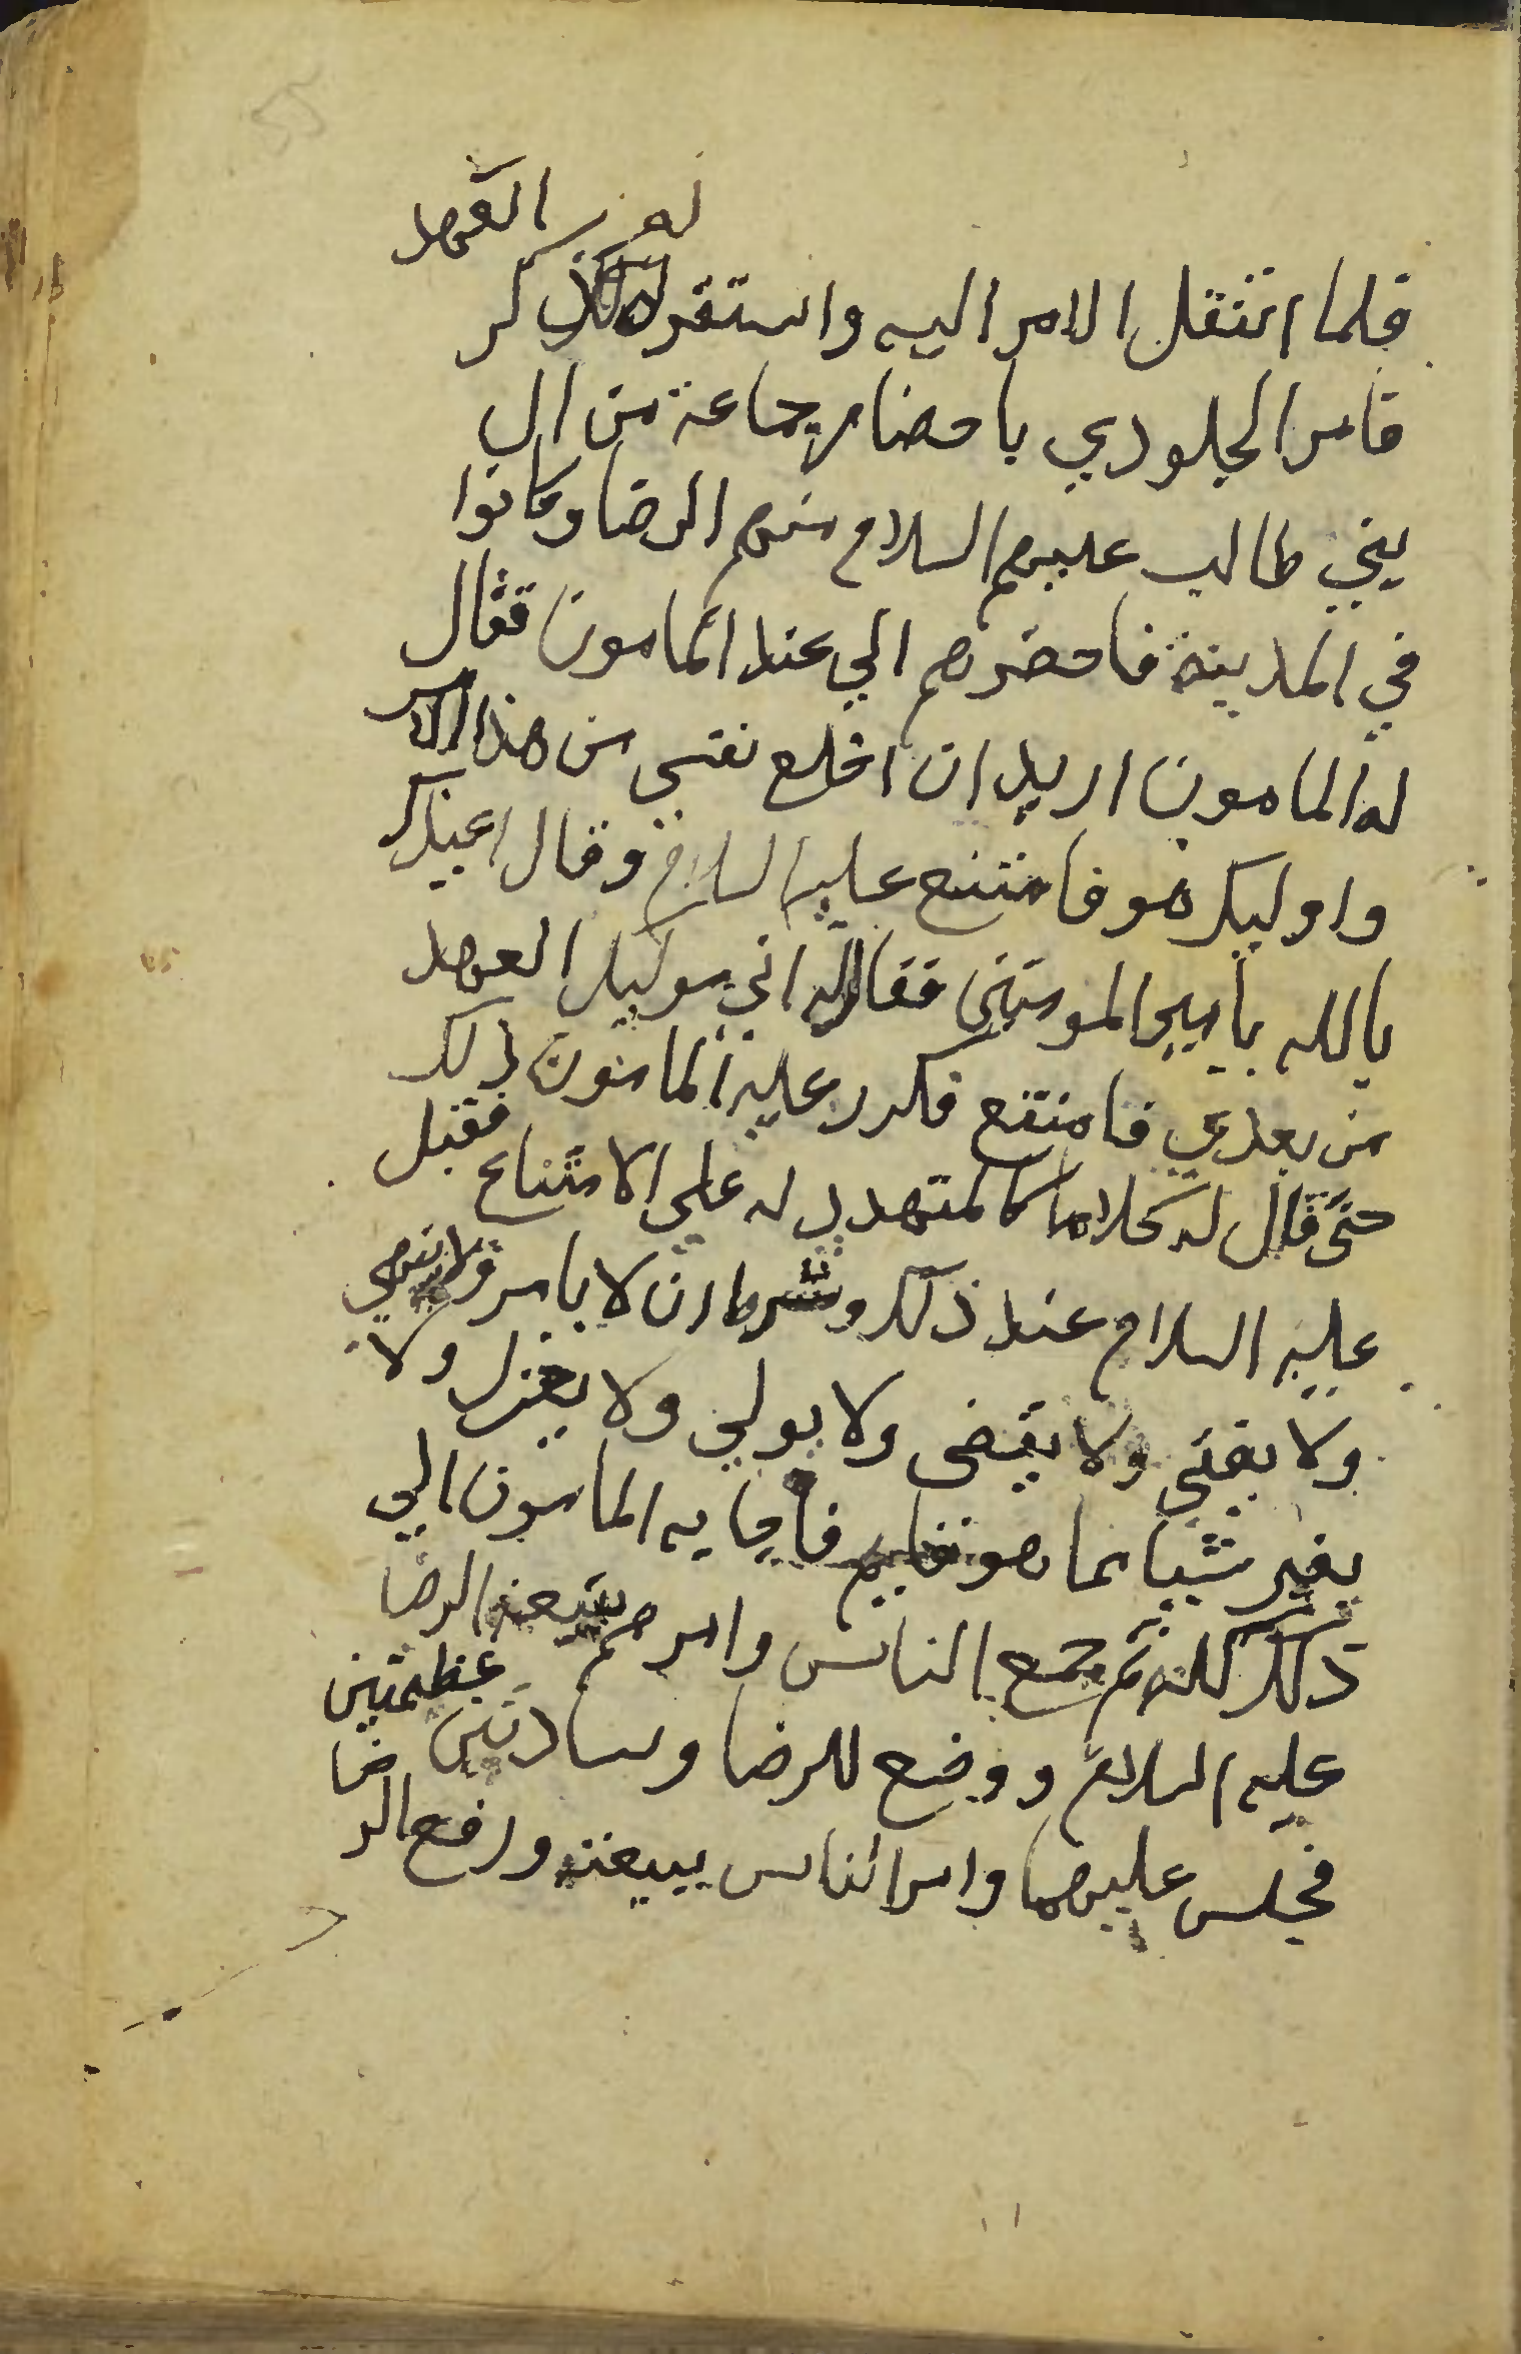 فلما انتقل الامر اليه واستقر له ذكر العهد
فامر الجلودي باحضار جماعة من ال
بني طالب عليهم السلام منهم الرضا وكانوا
في المدينة فاحضرهم الي عند المامون فقال
له المامون اريد ان اخلع نفسي من هذا الامر
واوليك هو فامتنع عليه السلام وقال اعيذك
بالله يا امير المومنين فقال له اني موليك العهد
من بعدي فامتنع فكرر عليه المامون ذلك
حتى قال له كلاما كالمتهدد له علي الامتناع فقبل
عليه السلام عند ذلك وشرط ان لا يامر ولا ينهي
ولا يفتي ولا يقضى ولا يولي ولا يعزل ولا
يغير شيا مما هو قايم فاجابه المامون الي
ذلك كله ثم جمع الناس وامرهم ببيعة الرضا
عليه السلام ووضع للرضا وسادتين عظيمتين
فجلس عليهما وامر الناس ببيعته ورفع الرضا